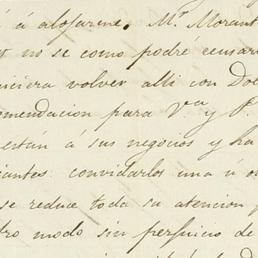 á alofarme. Mr. Morant
no se como podre censurar
volver alli con Dol
mendacion para V.a y P.
están á sus negocios y ha
convidarlos una ú o
se reduce toda su atencion
tro modo sin perjuicio de